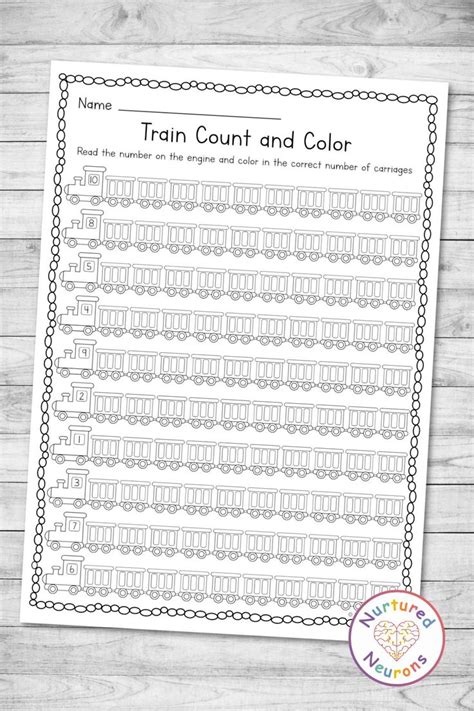 Name
Train Count and Color
Read the number on the engine and color in the correct number of carriages
10
8
5
4
9
2
1
3
7
6
Nurtured
Neurons